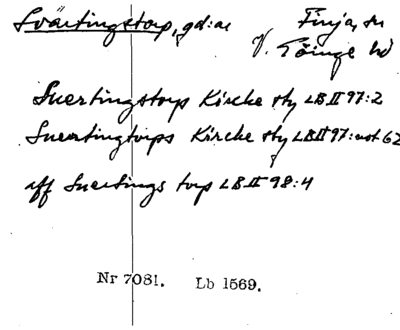 Svärtingstorp, gd:ar Finja, sn
V. Göinge hd
Suertingstorp Kirche sty LB II 97:2
Suertingtorps Kirche sty LB II 97: not 62
aff Suertings torp LB II 98:4
Nr 7081. Lb 1569.